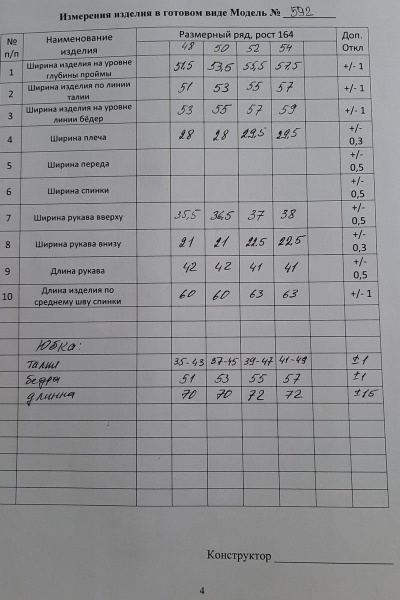 Измерения изделия в готовом виде Модель № 592
№ п/п Наименование изделия Размерный ряд, рост 164 Доп. Откл
48 50 52 54
1 Ширина изделия на уровне глубины проймы 51,5 53,5 55,5 57,5 +/- 1
2 Ширина изделия по линии талии 51 53 55 57 +/- 1
3 Ширина изделия на уровне линии бёдер 53 55 57 59 +/- 1
4 Ширина плеча 28 28 29,5 29,5 +/- 0,3
5 Ширина переда +/- 0,5
6 Ширина спинки +/- 0,5
7 Ширина рукава вверху 35,5 36,5 37 38 +/- 0,5
8 Ширина рукава внизу 21 21 22,5 22,5 +/- 0,3
9 Длина рукава 42 42 41 41 +/- 0,5
10 Длина изделия по среднему шву спинки 60 60 63 63 +/- 1
Юбка:
талия 35-43 37-45 39-47 41-49 ±1
бедра 51 53 55 57 ±1
длинна 70 70 72 72
Конструктор
4